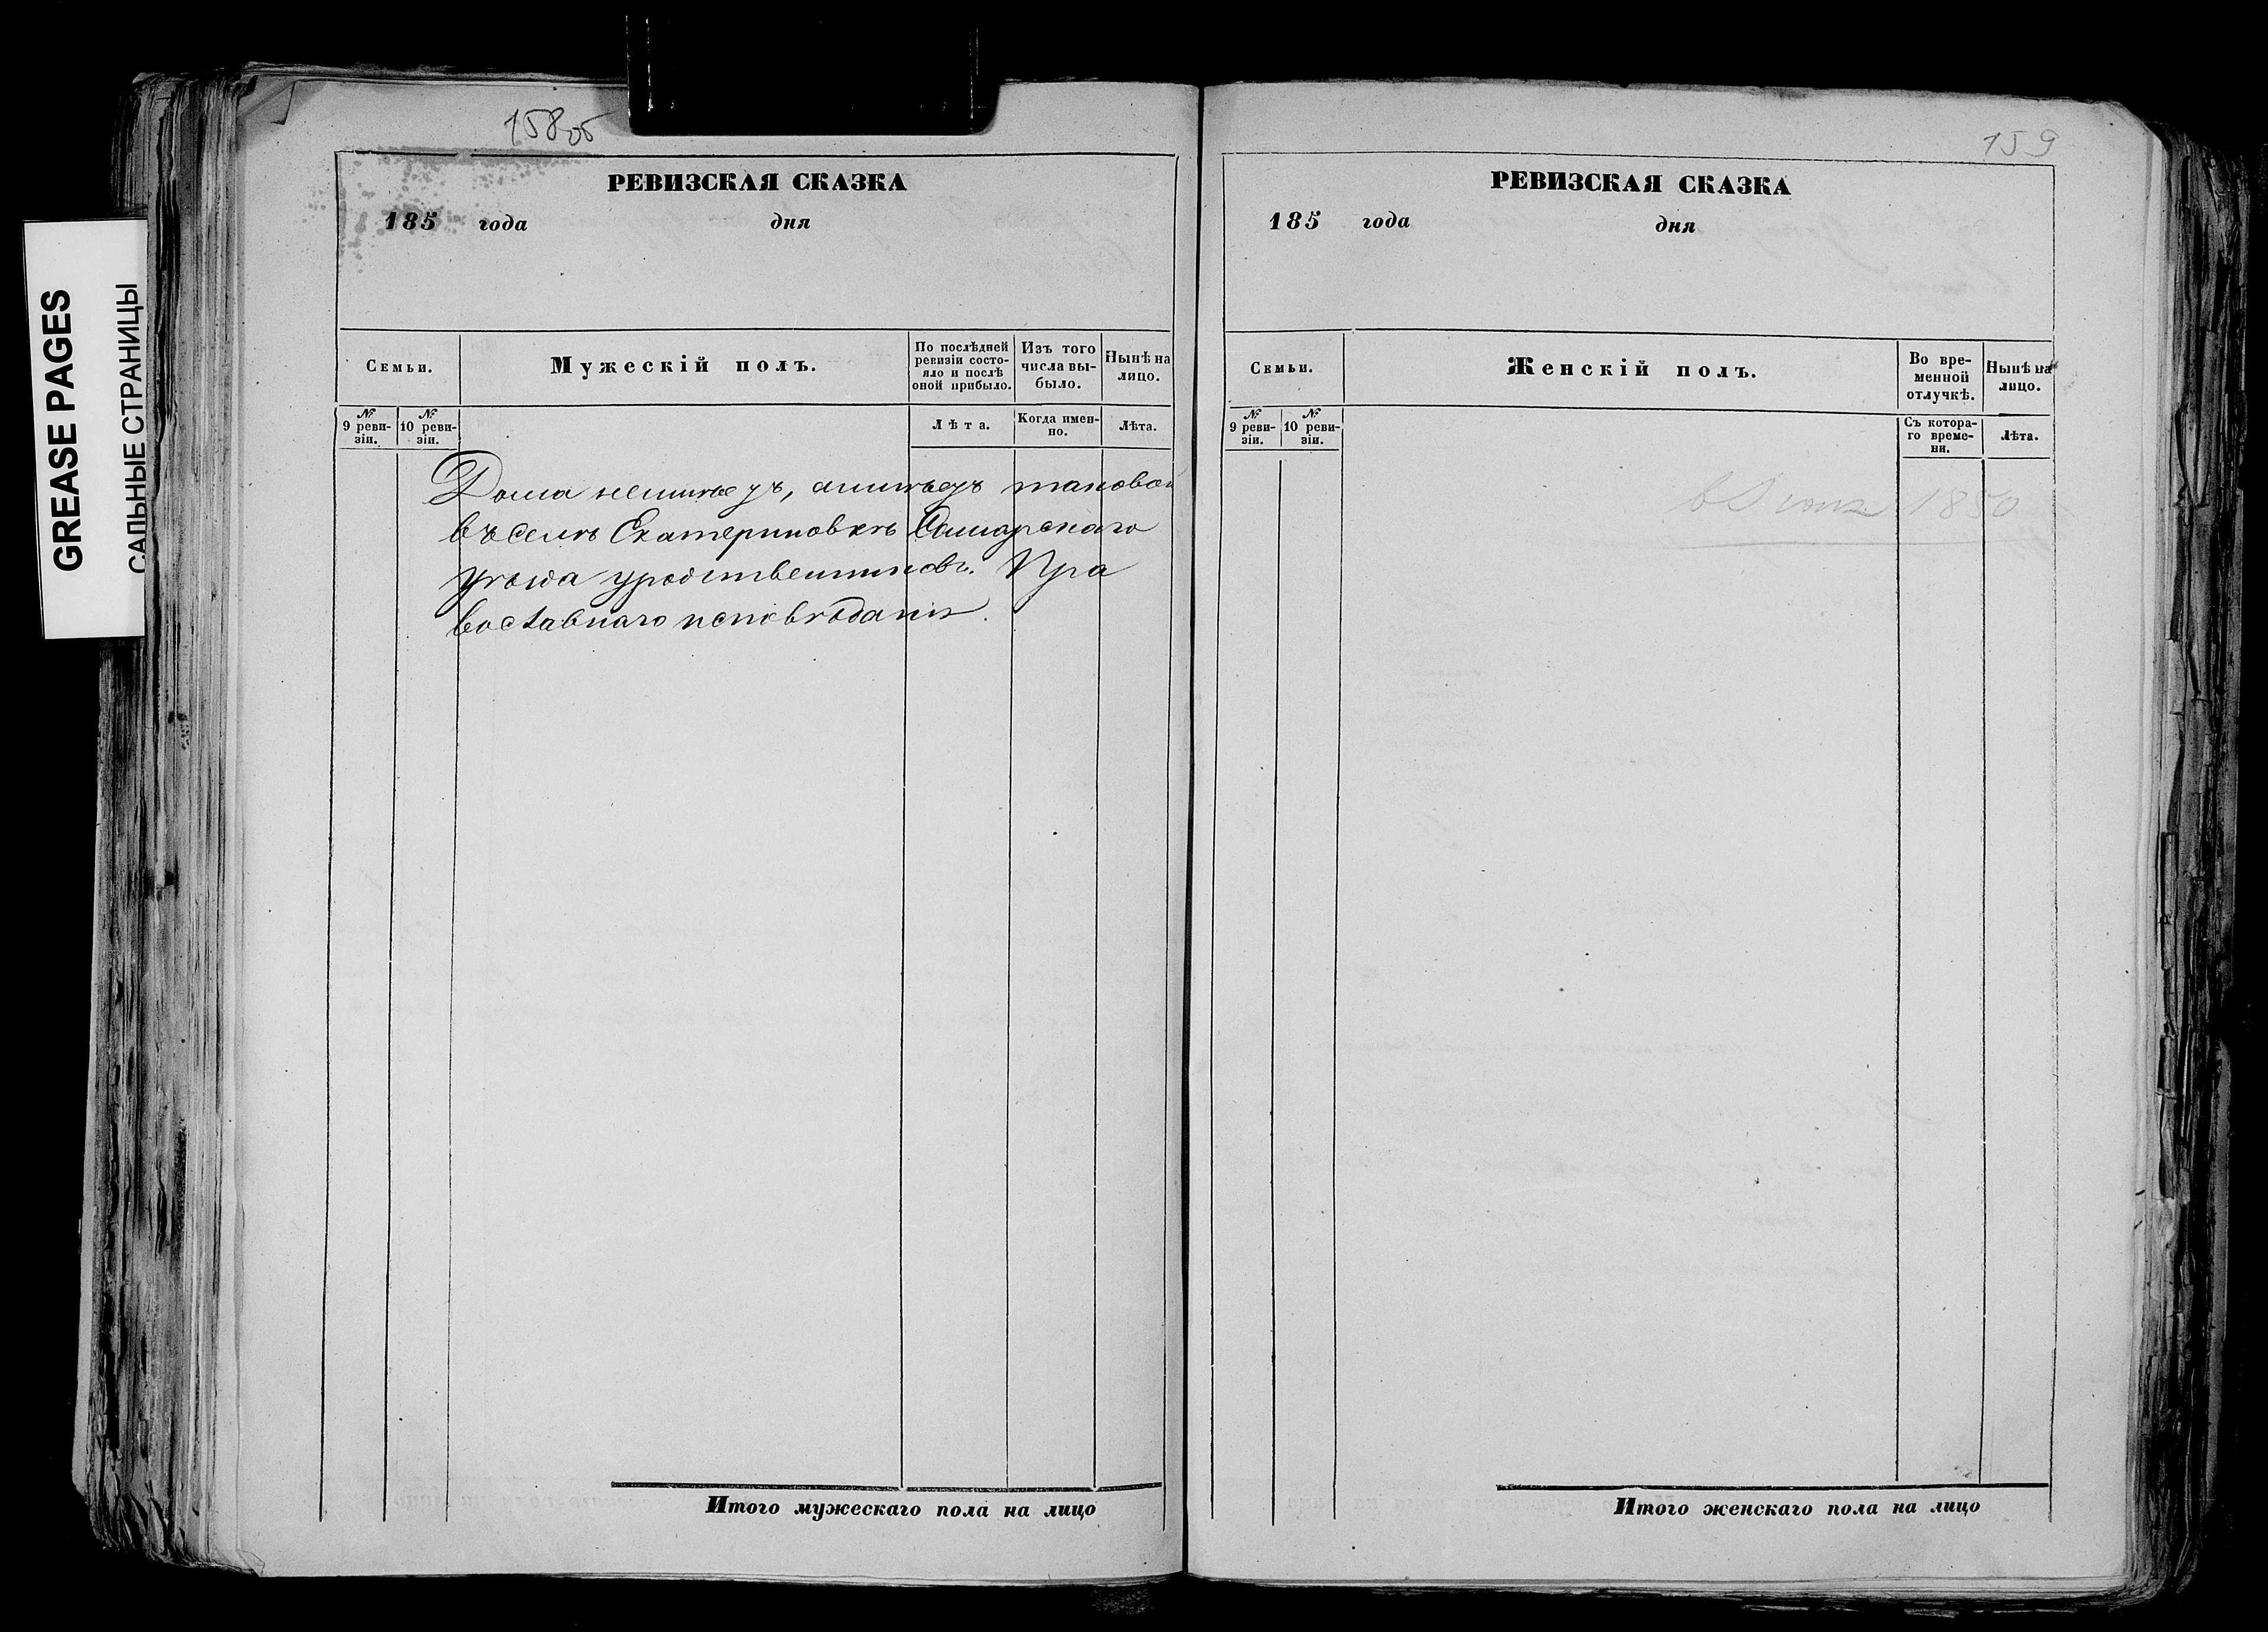 158об
159
GREASE PAGES
САЛЬНЫЕ СТРАНИЦЫ
РЕВИЗСКАЯ СКАЗКА
185 года дня
Семьи.
Мужескій полъ.
По послѣдней ревизіи состояло и послѣ оной прибыло.
Изъ того числа выбыло.
Нынѣ на лицо.
№ 9 ревизіи.
№ 10 ревизіи.
Лѣта.
Когда именно.
Лѣта.
Дома неимѣетъ, аимѣетъ таковой
въ селѣ Екатериновкѣ Самарскаго
уѣзда уродственниковъ. Пра
вославнаго исповѣданія.
Итого мужескаго пола на лицо
РЕВИЗСКАЯ СКАЗКА
185 года дня
Семьи.
Женскій полъ.
Во временной отлучкѣ.
Нынѣ на лицо.
№ 9 ревизіи.
№ 10 ревизіи.
Съ котораго времени.
Лѣта.
1850
Итого женскаго пола на лицо